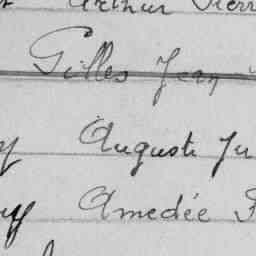 Arthur Pierr
Gilles Jean
Auguste Ju
Amedée